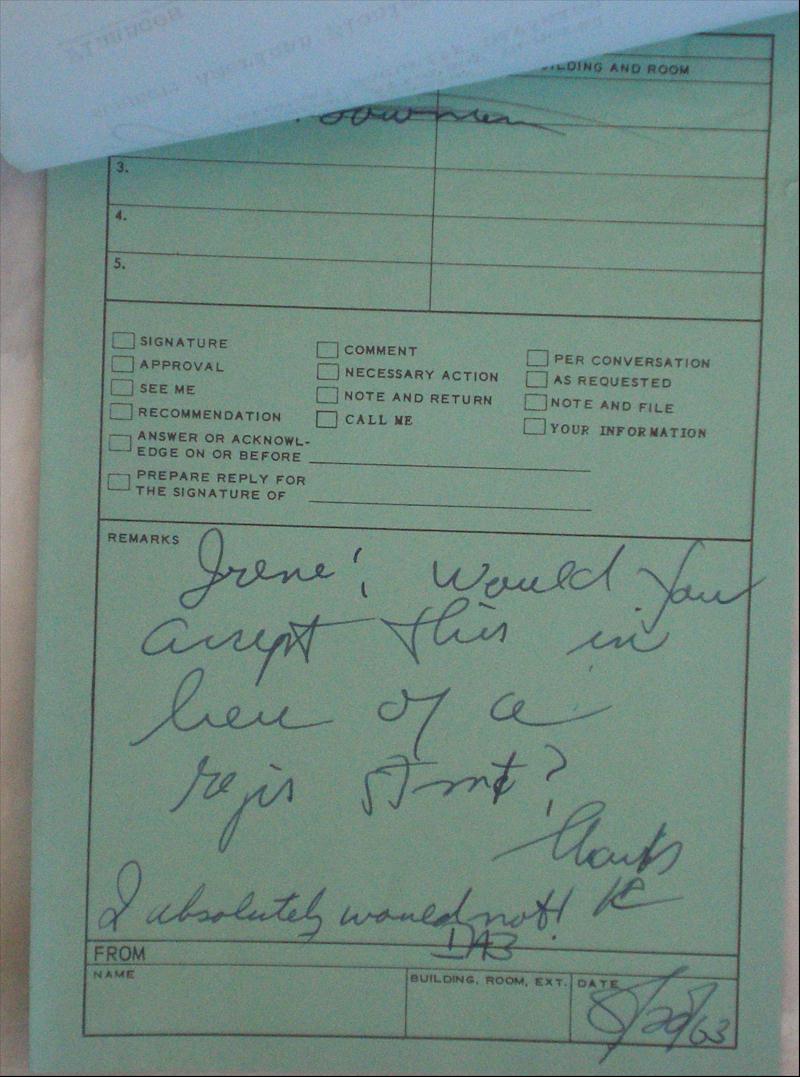 BUILDING AND ROOM
Bowman
3.
4.
5.
SIGNATURE COMMENT PER CONVERSATION
APPROVAL NECESSARY ACTION AS REQUESTED
SEE ME NOTE AND RETURN NOTE AND FILE
RECOMMENDATION CALL ME YOUR INFORMATION
ANSWER OR ACKNOWL-
EDGE ON OR BEFORE
PREPARE REPLY FOR
THE SIGNATURE OF
REMARKS
Irene; Would you
accept this in
lieu of a
regis stmt?
Thanks
I absolutely would not!
DAB
FROM
NAME BUILDING, ROOM, EXT. DATE